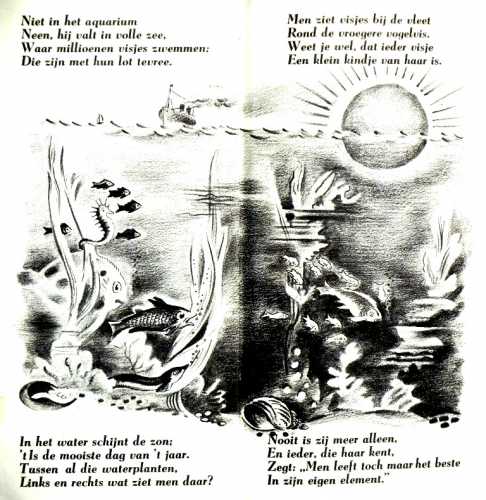 Niet in het aquarium
Neen, hij valt in volle zee,
Waar millioenen visjes zwemmen;
Die zijn met hun lot tevree.
In het water schijnt de zon;
't Is de mooiste dag van 't jaar.
Tussen al die waterplanten,
Links en rechts wat ziet men daar?
Men ziet visjes bij de vleet
Rond de vroegere vogelvis.
Weet je wel, dat ieder visje
Een klein kindje van haar is.
Nooit is zij meer alleen,
En ieder, die haar kent,
Zegt: „Men leeft toch maar het beste
In zijn eigen element.”